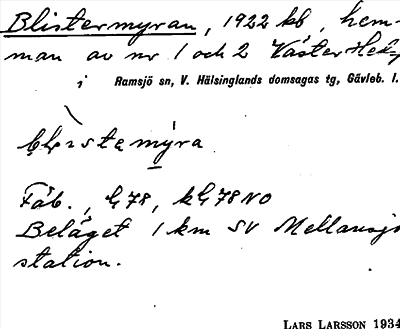 Blistermyran, 1922 kb, hem-
man av nr 1 och 2 Väster Hed
i Ramsjö sn, V. Hälsinglands domsagas tg, Gävleb. l.
Fäb., G78, kG78NO
Beläget 1 km SV Mellansjö
station.
LARS LARSSON 1934